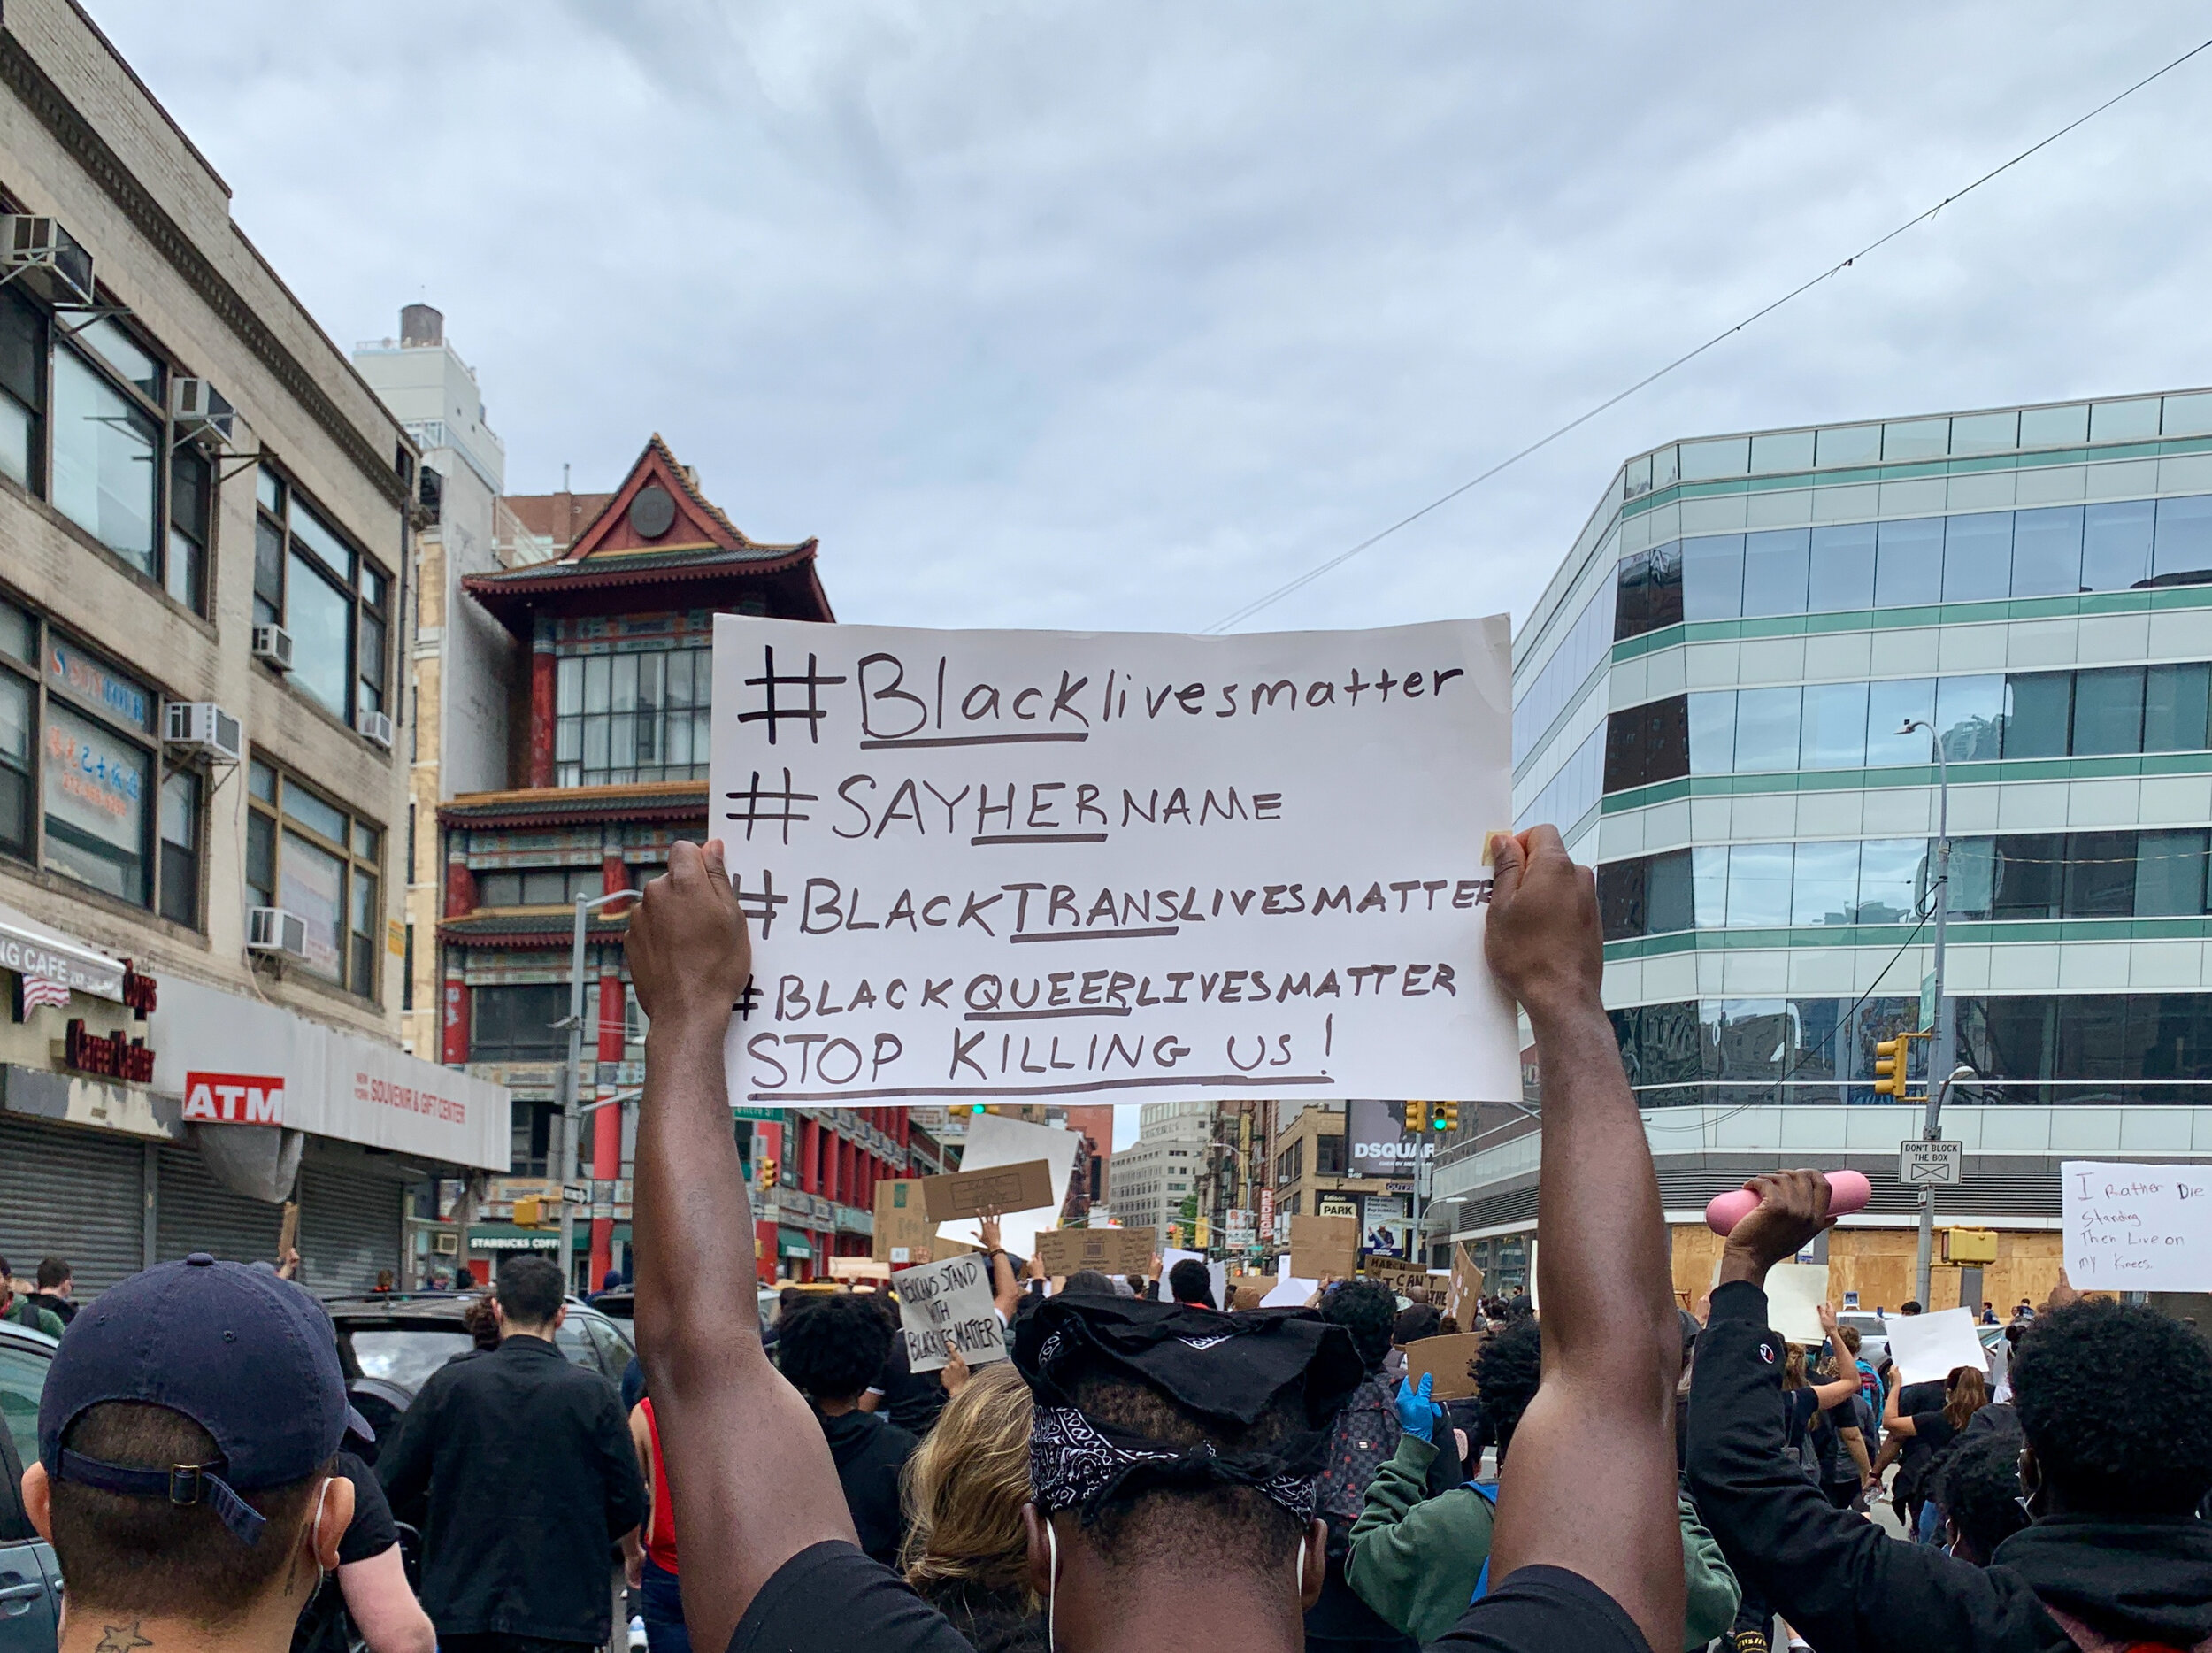 #Blacklivesmatter
#SAYHERNAME
#BLACKTRANSLIVESMATTER
#BLACKQUEERLIVESMATTER
STOP KILLING US!
NG CAFE
ATM
NEW YORK SOUVENIR & GIFT CENTER
STARBUCKS COFF
MEXICANS STAND
WITH
BLACKLIVESMATTER
DSQUAR
Edison
PARK
MARCH
I CAN'T
DON'T BLOCK
THE BOX
I Rather Die
Standing
Then Live on
my knees.